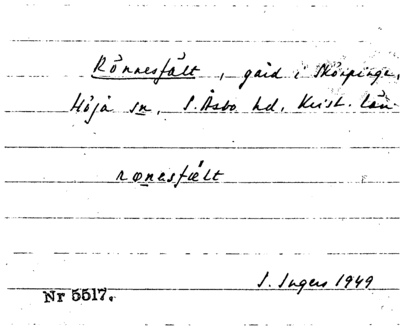 Rönnesfält, gård i Skörpinge,
Höja sn, S. Åsbo hd, Krist. län
rœnesfælt
I. Ingers 1949
Nr 5517.